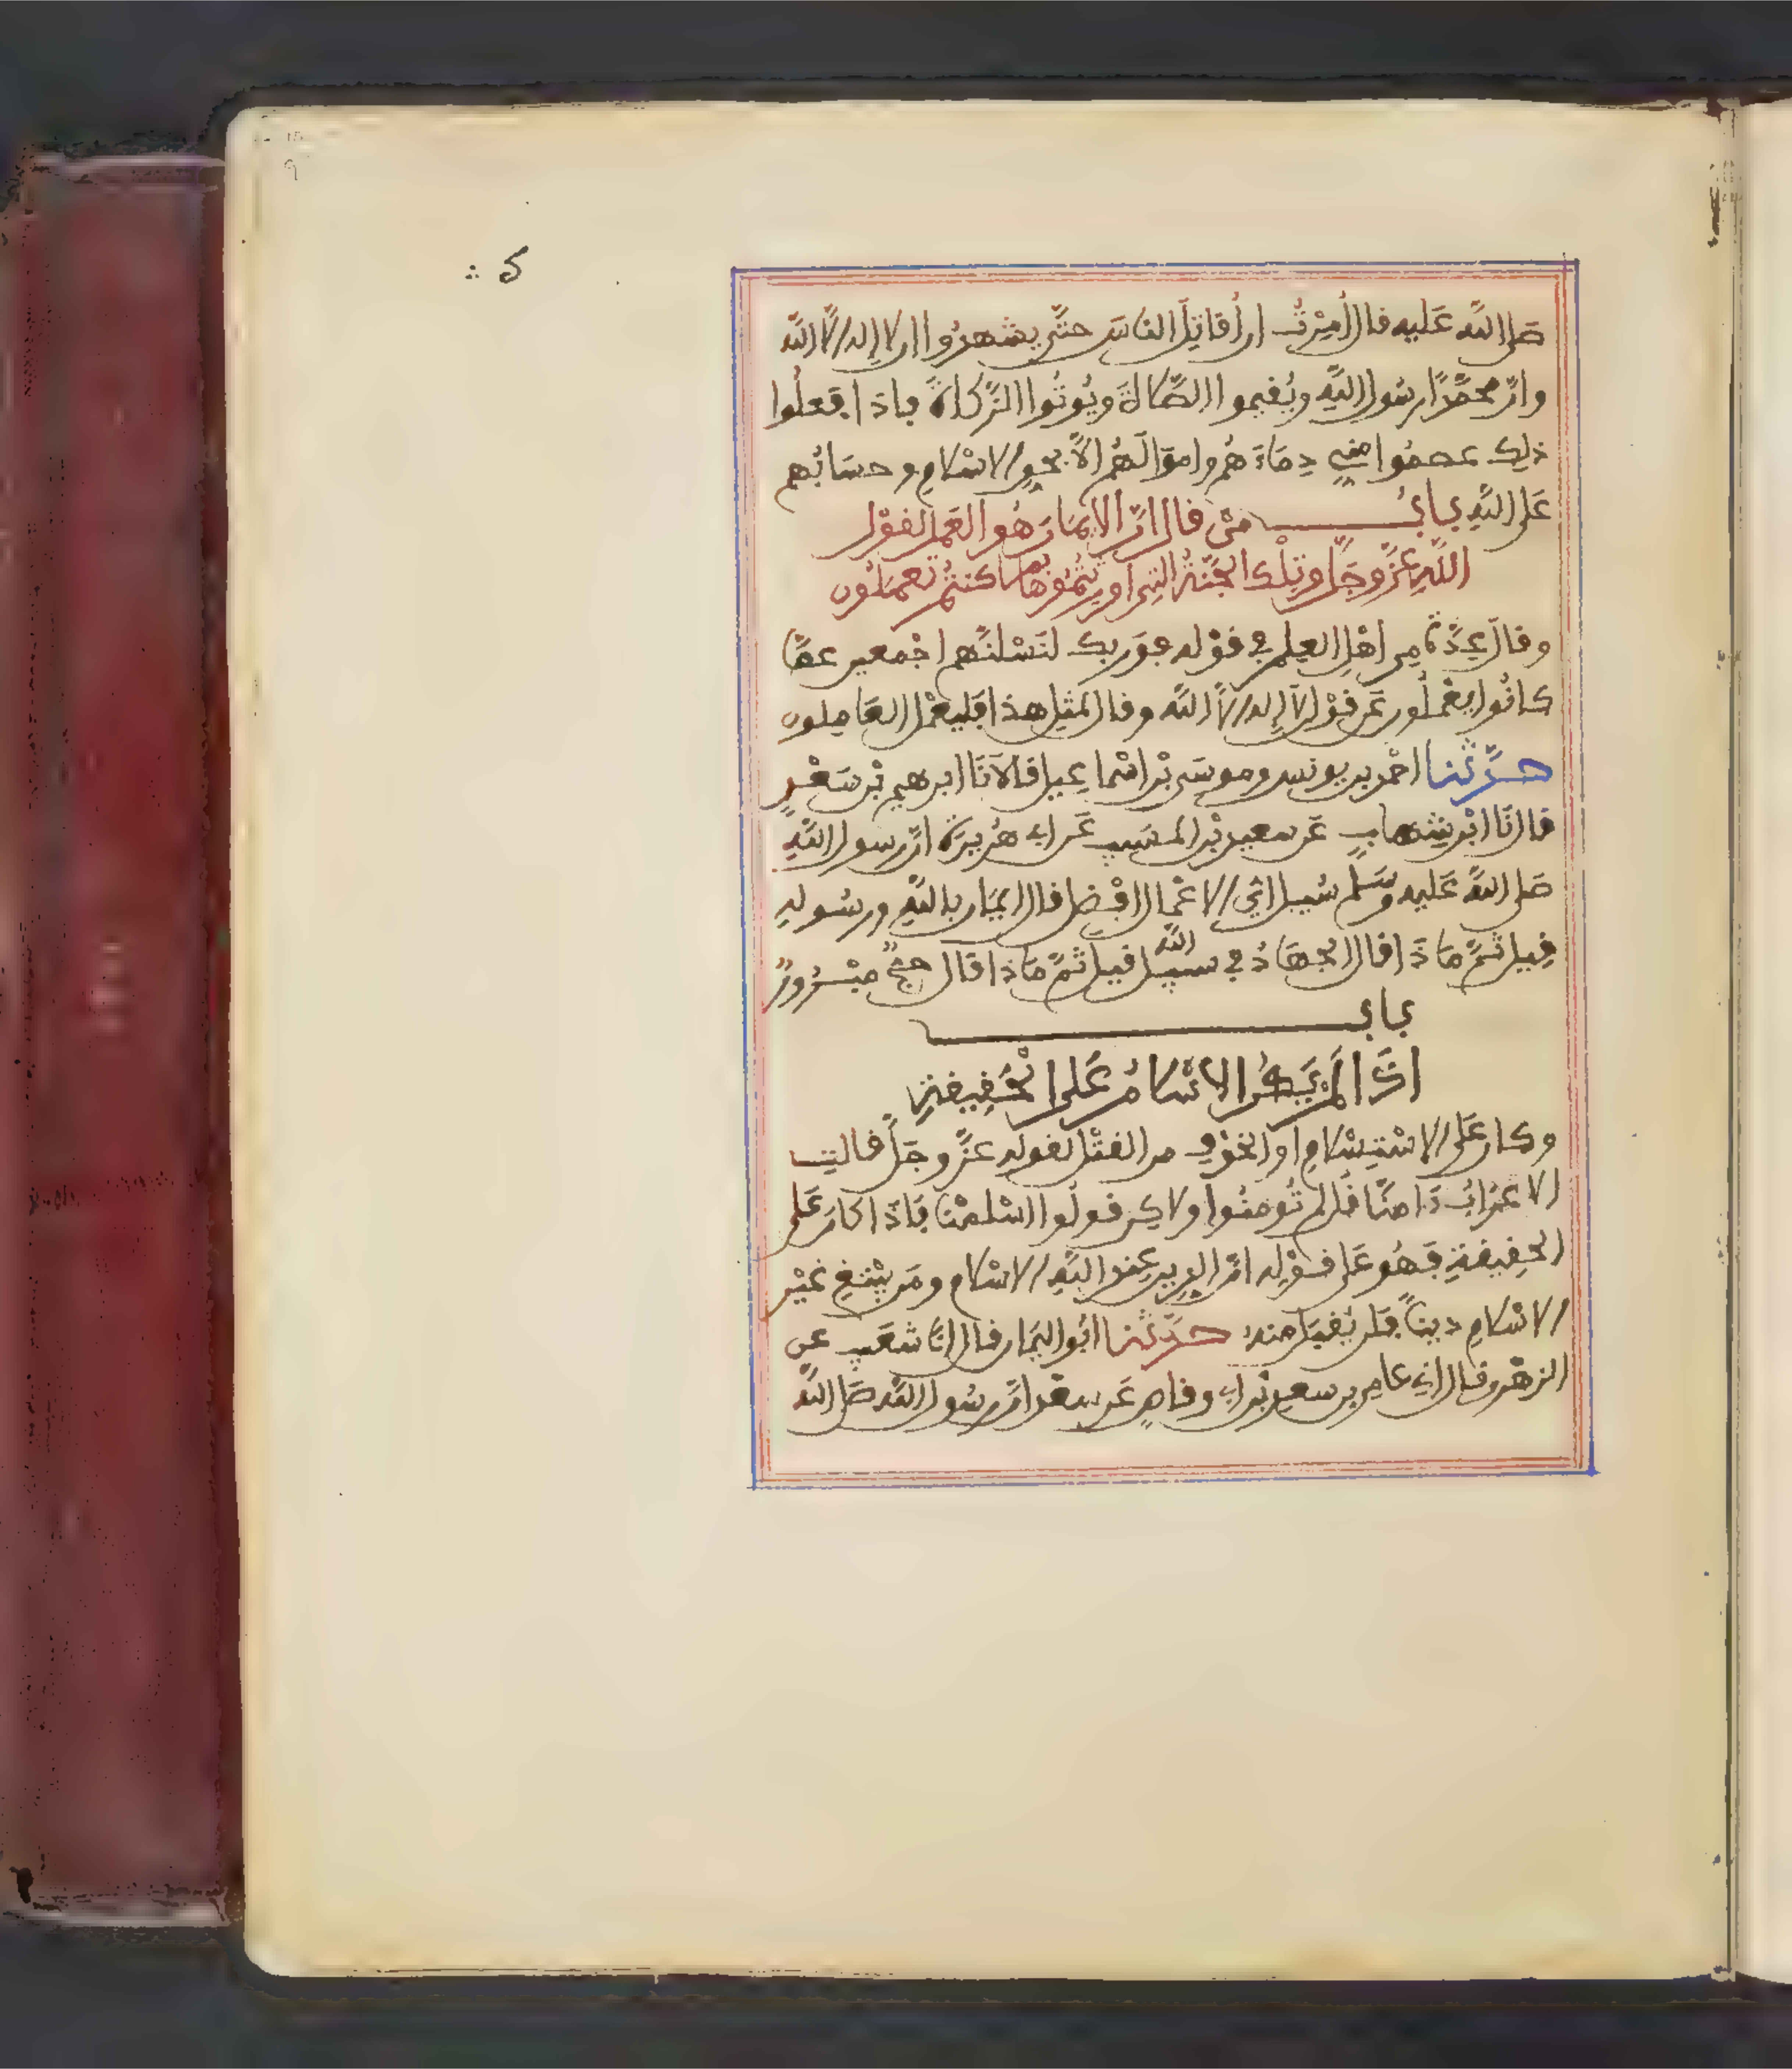 صلى الله عليه قال أُمِرْتُ ان أُقاتِلَ الناسَ حتَّى يشهدُوا ان لا إله إلّا اللَّه
وانّ محمَّدًا رسُول اللَّهِ ويُقيموا الصَّلاةَ ويُوتُوا الزَّكاةَ فاذا فَعلُوا
ذلك عصمُوا مني دِمَاءَهُم وامْوَالَهُم الّا بحقِ الاسْلامِ وحسَابُهم
عَلى اللَّهِ بابُ مَنْ قال انّ الايمَان هُو العَمل لقوْل
اللَّهِ عَزَّ وجَلَّ وتِلْكَ الجَنَّةُ التِي اورِثتُمُوهَا بما كنتُم تَعملُون
وقالَ عِدَّة مِن اهْلِ العِلم في قوْله فوَربك لنَسْلنَّهم اجْمعين عمَّا
كانُوا يعْملُون عَن قوْلِ لا إله إلّا اللَّه وقال لمثلِ هذا فليعْمل العَامِلون
حدَّثنا احْمد بن يونس وموسَى بْن اسْماعِيل قالَا نَا ابرهيم بْن سَعْدٍ
قال نَا ابْن شِهابٍ عَن سعيد بْن المسَيب عَن ابي هُريرَة انّ رسول اللَّهِ
صَلى اللَّه عَليه وسَلَّم سُيل ايُّ الاعْمال افْضل قال ايمَان باللَّهِ ورسُولهِ
قِيل ثمَّ مَاذَا قال الجهَادُ في سبيل اللَّه قيل ثمَّ مَاذا قَال حجٌّ مبْرُورٌ
باب
اذَا لَمْ يَكُن الاسْلامُ عَلى الحَقِيقةِ
وكان عَلى الاسْتِسْلامِ او الخَوْفِ من القتْل لقوله عزَّ وجَلَّ قالتِ
الاعرَابُ ءَامنَّا قُل لم تُومنُوا ولاكِن قولُوا اسْلمْنا فَاذَا كانَ عَلى
الحقِيقةِ فَهُو عَلى قوْلِه انّ الدِين عِند اللَّهِ الاسْلام ومَن يبْتغِ غيْر
الاسْلامِ دينًا فَلن يُقبَل منه حدَّثنا ابُو اليمَان قال انَا شعَيب عن
الزهْري قال اني عامِر بن سعد بْن ابي وقاصٍ عَن سعْد انّ رسُول اللَّه صَلى اللَّه